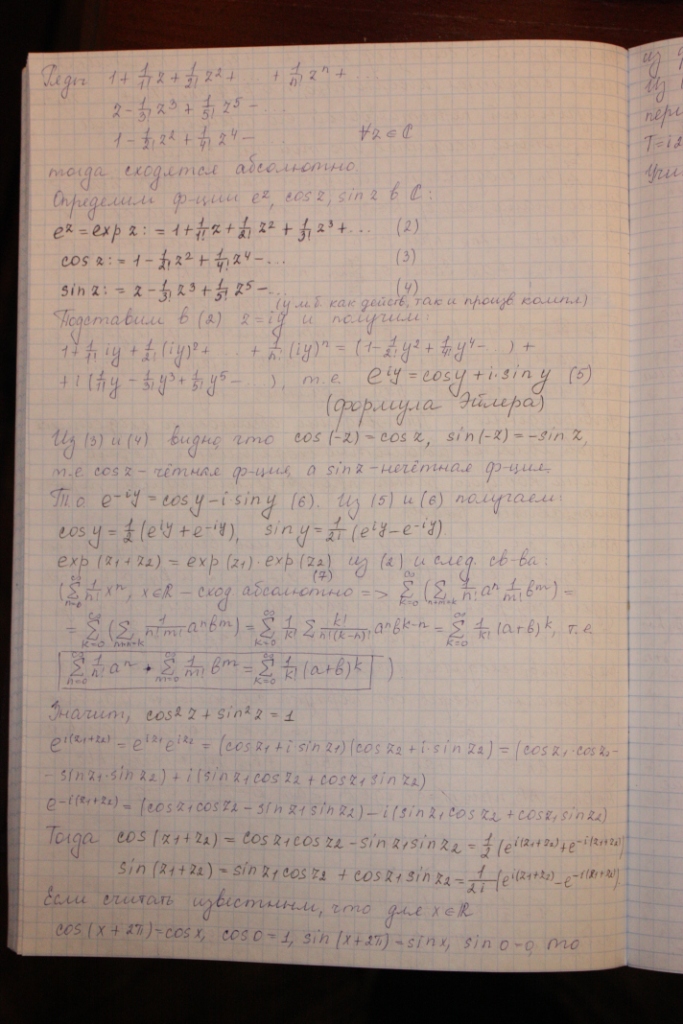 Ряды 1 + 1/1! z + 1/2! z² + ... + 1/n! zⁿ + ...
z - 1/3! z³ + 1/5! z⁵ - ...
1 - 1/2! z² + 1/4! z⁴ - ∀z ∈ ℂ
тогда сходятся абсолютно
Определим ф-ции eᶻ, cos z, sin z в ℂ:
eᶻ = exp z := 1 + 1/1! z + 1/2! z² + 1/3! z³ + ... (2)
cos z := 1 - 1/2! z² + 1/4! z⁴ - ... (3)
sin z := z - 1/3! z³ + 1/5! z⁵ - ... (4)
(y м.б. как действ, так и произв компл)
Подставим в (2) z = iy и получим:
1 + 1/1! iy + 1/2! (iy)² + ... + 1/n! (iy)ⁿ = (1 - 1/2! y² + 1/4! y⁴ - ...) +
+ i (1/1! y - 1/3! y³ + 1/5! y⁵ - ...), т.е. e^{iy} = cos y + i·sin y (5)
(формула Эйлера)
Из (3) и (4) видно, что cos(-z) = cos z, sin(-z) = -sin z,
т.е cos z - чётная ф-ция, а sin z - нечётная ф-ция.
То e^{-iy} = cos y - i sin y (6). Из (5) и (6) получаем:
cos y = 1/2 (e^{iy} + e^{-iy}), sin y = 1/2i (e^{iy} - e^{-iy}).
exp(z₁ + z₂) = exp(z₁)·exp(z₂) из (2) и след. св-ва:
(7)
(∑_{n=0}^{∞} 1/n! xⁿ, x ∈ ℝ - сход абсолютно => ∑_{k=0}^{∞} (∑_{n+m=k} 1/n! aⁿ 1/m! bᵐ) =
= ∑_{k=0}^{∞} (∑_{n+m=k} 1/n!m! aⁿbᵐ) = ∑_{k=0}^{∞} 1/k! ∑ k!/n!(k-n)! aⁿb^{k-n} = ∑_{k=0}^{∞} 1/k! (a+b)ᵏ, т.е
∑_{n=0}^{∞} 1/n! aⁿ · ∑_{m=0}^{∞} 1/m! bᵐ = ∑_{k=0}^{∞} 1/k! (a+b)ᵏ )
Значит, cos² z + sin² z = 1
e^{i(z₁+z₂)} = e^{iz₁} e^{iz₂} = (cos z₁ + i sin z₁)(cos z₂ + i·sin z₂) = (cos z₁·cos z₂ -
- sin z₁·sin z₂) + i(sin z₁ cos z₂ + cos z₁ sin z₂)
e^{-i(z₁+z₂)} = (cos z₁ cos z₂ - sin z₁ sin z₂) - i(sin z₁ cos z₂ + cos z₁ sin z₂)
Тогда cos(z₁+z₂) = cos z₁ cos z₂ - sin z₁ sin z₂ = 1/2 (e^{i(z₁+z₂)} + e^{-i(z₁+z₂)}
sin(z₁+z₂) = sin z₁ cos z₂ + cos z₁ sin z₂ = 1/2i (e^{i(z₁+z₂)} - e^{-i(z₁+z₂)}
Если считать известным, что для x ∈ ℝ
cos(x + 2π) = cos x, cos 0 = 1, sin(x + 2π) = sin x, sin 0 = 0, то
из
Из
пери
T = i2
Учи